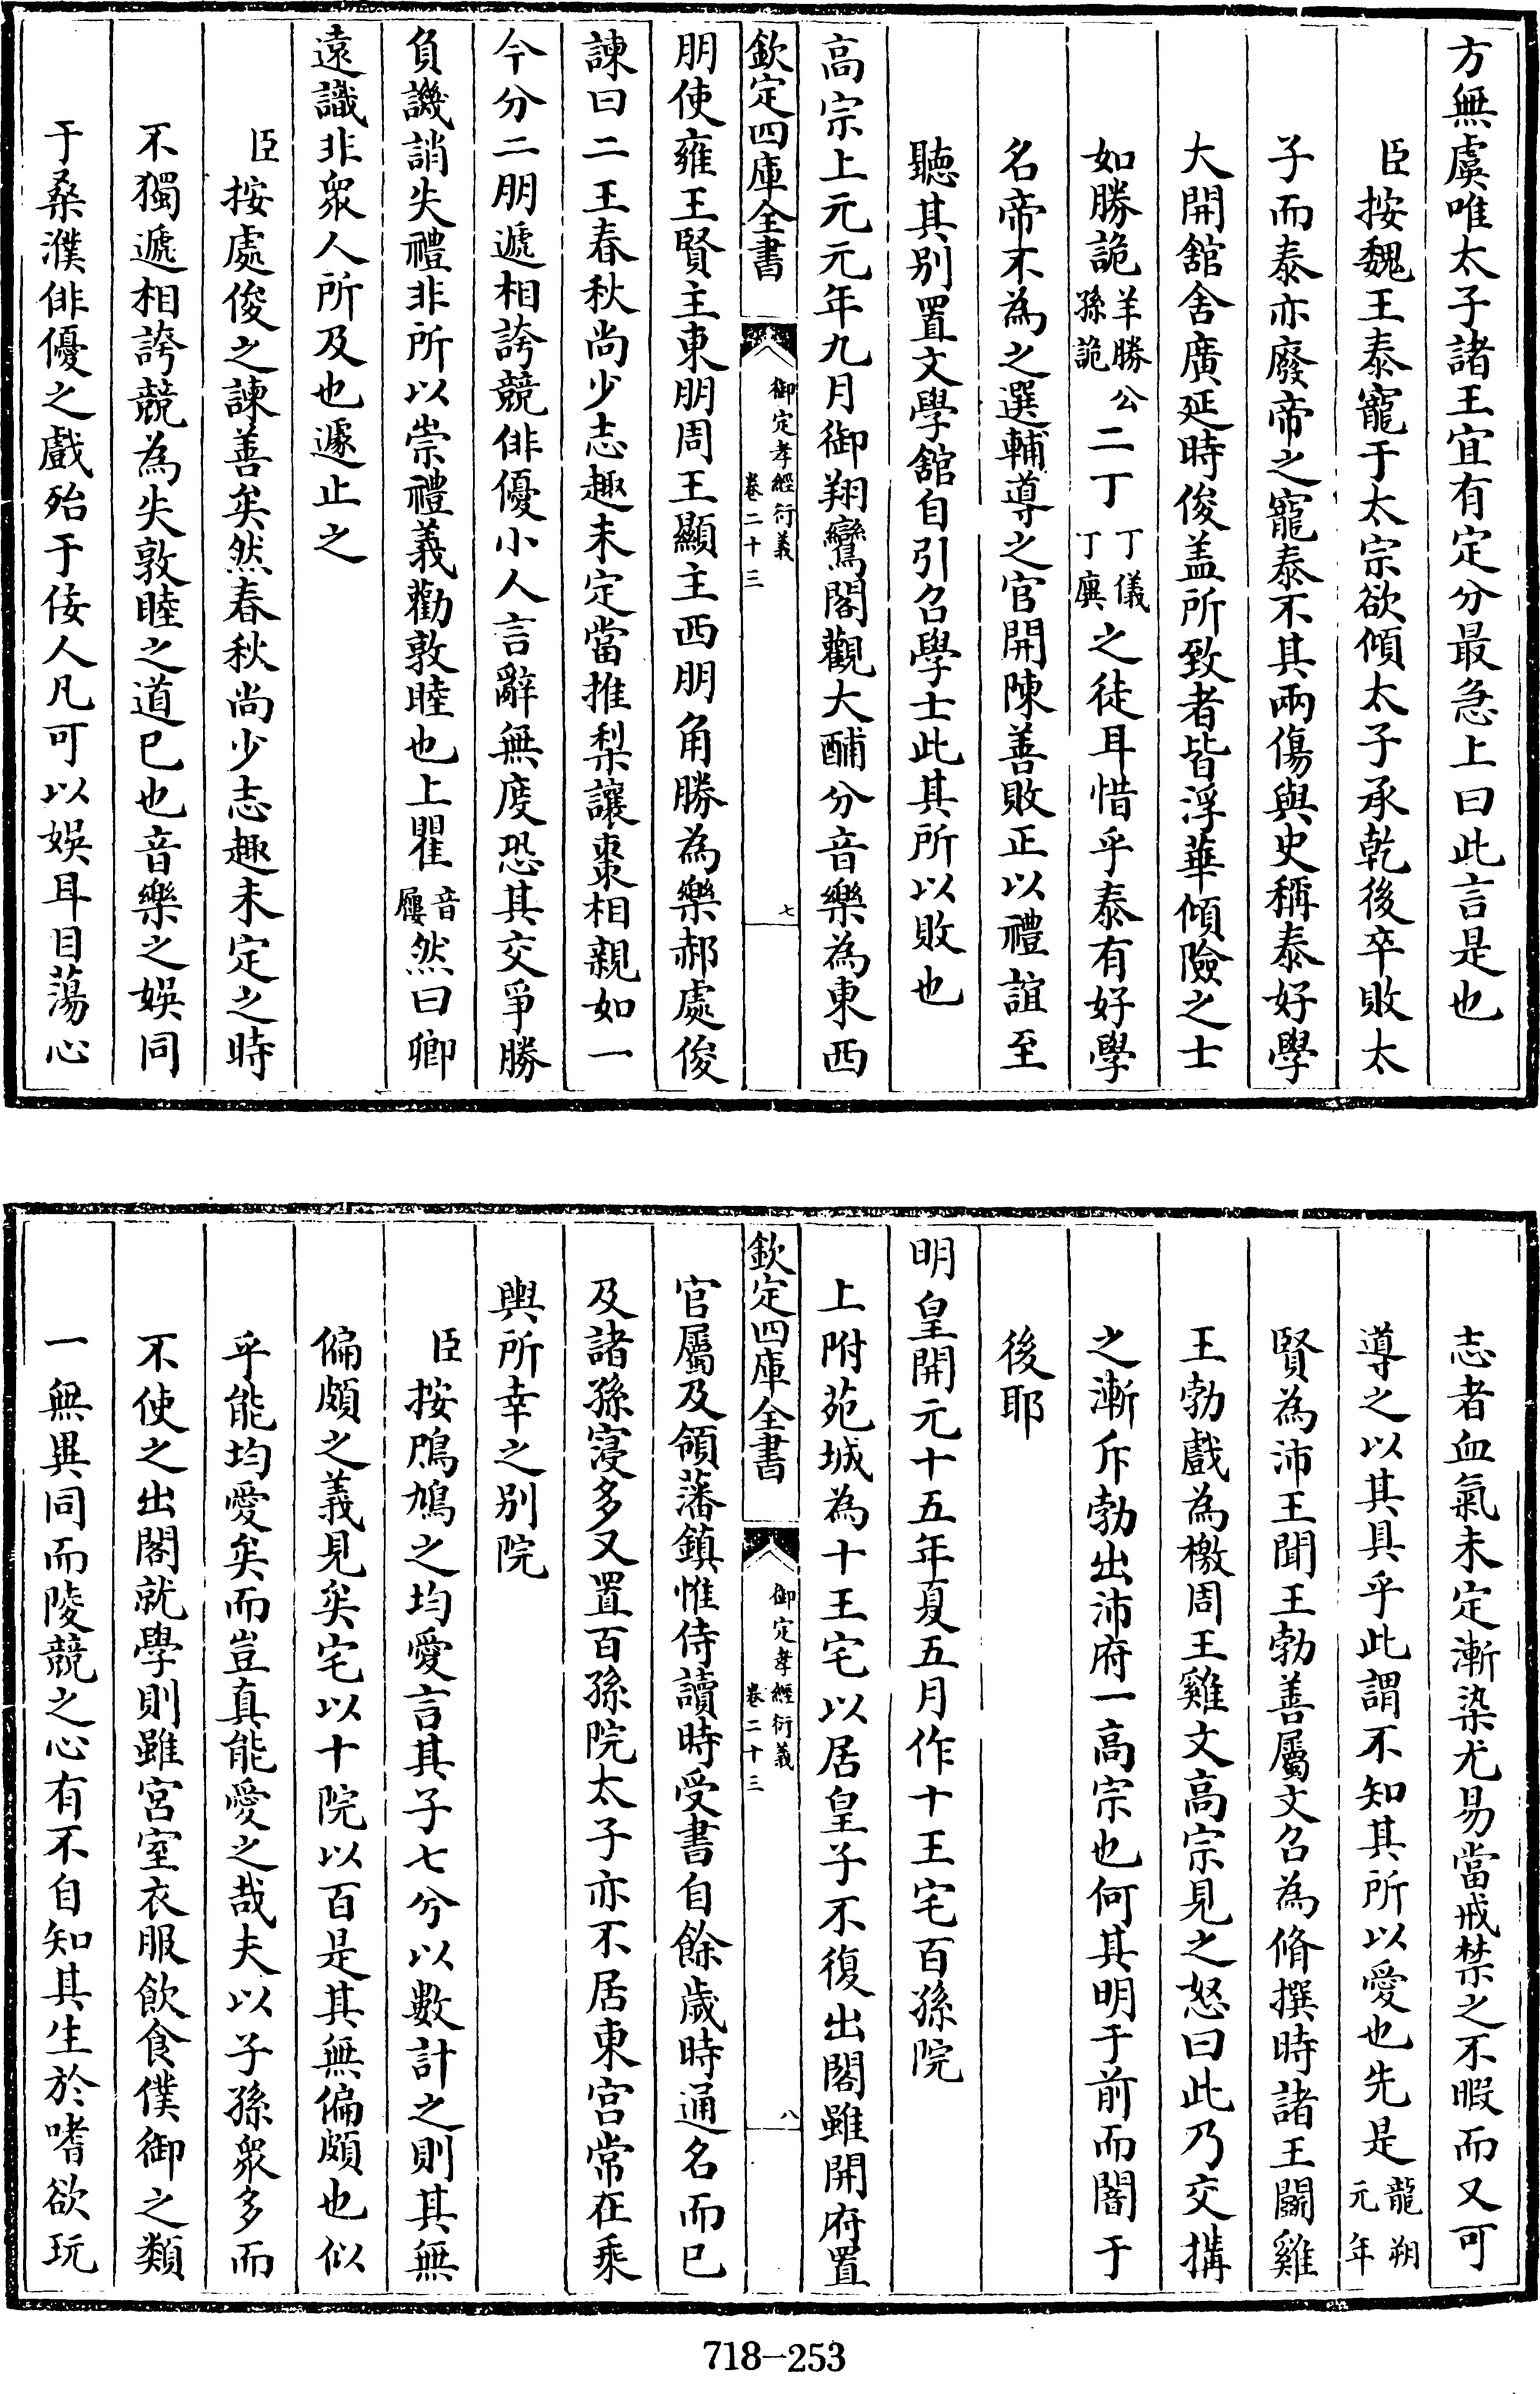 方無虞唯太子諸王宜有定分最急上曰此言是也
臣按魏王泰寵于太宗欲傾太子承乾後卒敗太
子而泰亦廢帝之寵泰不其兩傷與史稱泰好學
大開舘舍廣延時俊盖所致者皆浮華傾險之士
如勝詭羊勝公孫詭二丁丁儀丁廙之徒耳惜乎泰有好學
名帝不為之選輔導之官開陳善敗正以禮誼至
聽其别置文學舘自引召學士此其所以敗也
高宗上元元年九月御翔鸞閣觀大酺分音樂為東西
欽定四庫全書 御定孝經衍義 卷二十三 七
朋使雍王賢主東朋周王顯主西朋角勝為樂郝處俊
諫曰二王春秋尚少志趣未定當推梨讓棗相親如一
今分二朋遞相誇競俳優小人言辭無度恐其交爭勝
負譏誚失禮非所以崇禮義勸敦睦也上瞿音屨然曰卿
遠識非衆人所及也遽止之
臣按處俊之諫善矣然春秋尚少志趣未定之時
不獨遞相誇競為失敦睦之道已也音樂之娛同
于桑濮俳優之戲殆于佞人凡可以娛耳目蕩心
志者血氣未定漸染尤易當戒禁之不暇而又可
導之以其具乎此謂不知其所以愛也先是龍朔元年
賢為沛王聞王勃善屬文召為脩撰時諸王鬭雞
王勃戲為檄周王雞文高宗見之怒曰此乃交搆
之漸斥勃出沛府一高宗也何其明于前而闇于
後耶
明皇開元十五年夏五月作十王宅百孫院
上附苑城為十王宅以居皇子不復出閣雖開府置
欽定四庫全書 御定孝經衍義 卷二十三 八
官屬及領藩鎮惟侍讀時受書自餘歲時通名而已
及諸孫寖多又置百孫院太子亦不居東宫常在乘
輿所幸之别院
臣按鳲鳩之均愛言其子七兮以數計之則其無
偏頗之義見矣宅以十院以百是其無偏頗也似
乎能均愛矣而豈真能愛之哉夫以子孫衆多而
不使之出閣就學則雖宮室衣服飲食僕御之類
一無異同而陵競之心有不自知其生於嗜欲玩
718-253